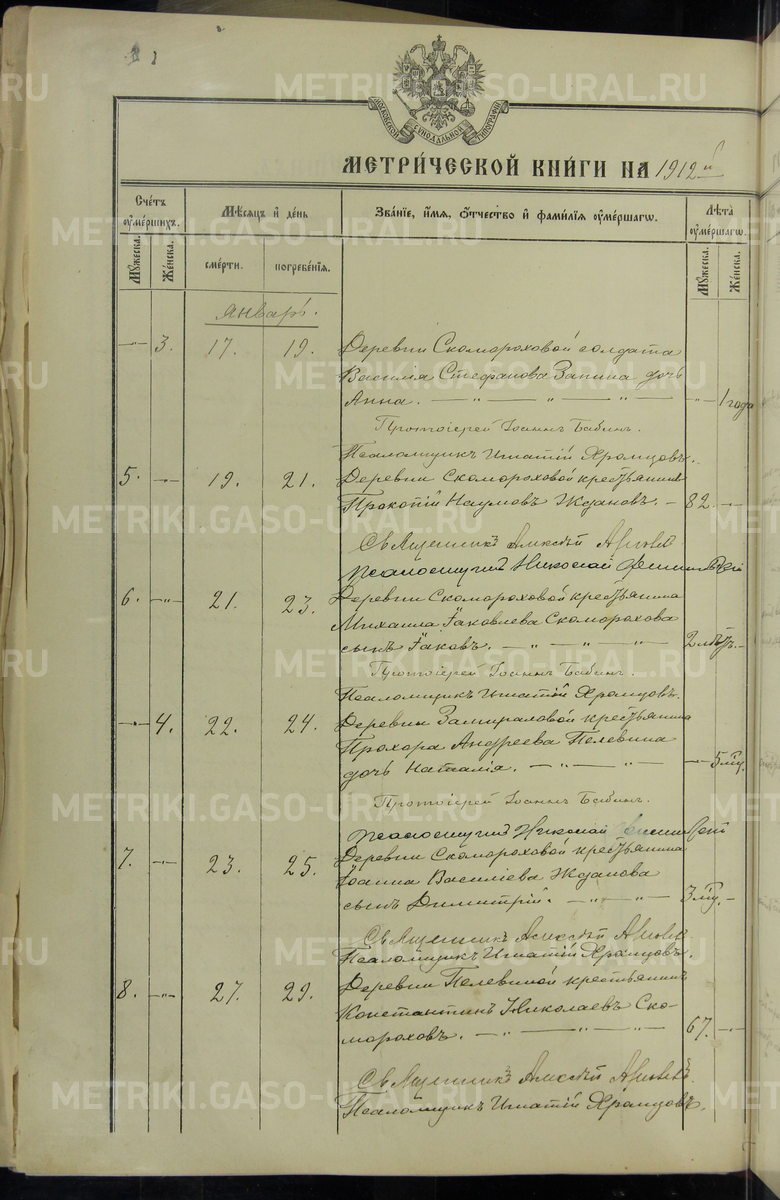 МОСКОВСКОЙ СѴНОДАЛЬНОЙ ТИПОГРАФІИ
МЕТРИ́ЧЕСКОЙ КНИ́ГИ НА 1912й
Сче́тъ ᲂу҆ме́ршихъ.
Мѣ́сѧцъ и҆ де́нь
Зва́нїе, и҆́мѧ, ѻ҆́тчество и҆ фами́лїѧ ᲂу҆ме́ршагѡ.
Лѣ́та ᲂу҆ме́ршагѡ.
Мꙋ́жеска.
Же́нска.
сме́рти.
погребе́нїѧ.
Мꙋ́жеска.
Же́нска.
Январь.
—„— 3. 17. 19. Деревни Скомороховой солдата
Василія Стефанова Запина дочь
Анна. — „ — „ — „ — —„— 1 года
Протоіерей Іоаннъ Бабинъ.
Псаломщикъ Игнатій Храмцовъ.
5. —„— 19. 21. Деревни Скомороховой крестьянинъ
Прокопій Наумовъ Ждановъ. — 82. —„—
Священникъ Алексѣй
Псаломщикъ Николай
6. —„— 21. 23. Деревни Скомороховой крестьянина
Михаила Іаковлева Скоморохова
сынъ Іаковъ. — „ — „ — „ — 2 лѣтъ. —
Протоіерей Іоаннъ Бабинъ.
Псаломщикъ Игнатій Храмцовъ.
—„— 4. 22. 24. Деревни Замираловой крестьянина
Прохора Андреева Пелевина
дочь Наталія. — „ — „ — —„— 5 мѣц.
Протоіерей Іоаннъ Бабинъ.
Псаломщикъ Николай
7. —„— 23. 25. Деревни Скомороховой крестьянина
Іоанна Василіева Жданова
сынъ Димитрій. — „ — „ — 3 мѣц. —
Священникъ Алексѣй
Псаломщикъ Игнатій Храмцовъ.
8. —„— 27. 29. Деревни Пелевиной крестьянинъ
Константинъ Николаевъ Ско-
мороховъ. — „ — „ — „ — 67. —„—
Священникъ Алексѣй
Псаломщикъ Игнатій Храмцовъ.
METRIKI.GASO-URAL.RU